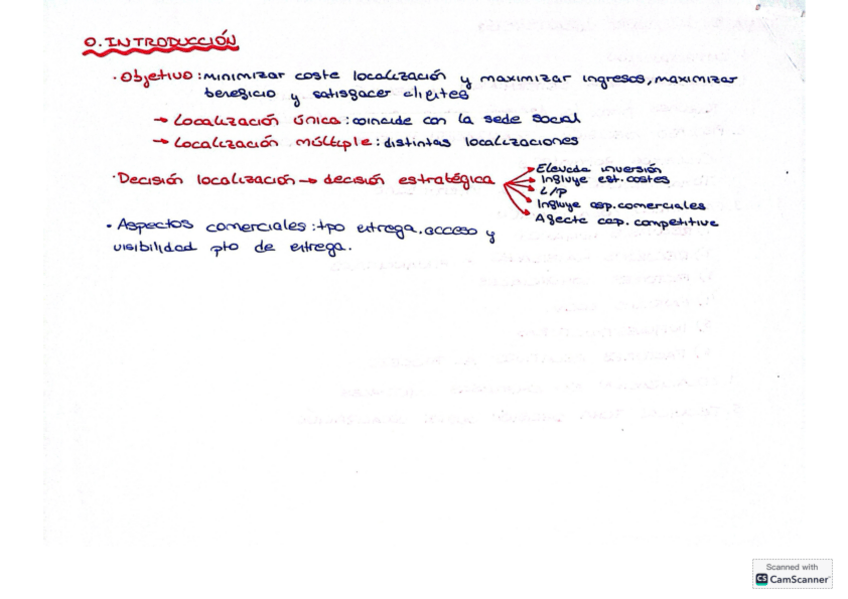 0. INTRODUCCIÓN
· Objetivo: minimizar coste localización y maximizar ingresos, maximizar
beneficio y satisfacer clientes
→ Localización única: coincide con la sede social
→ Localización múltiple: distintas localizaciones
· Decisión localización → decisión estratégica
→ Elevada inversión
→ Influye est. costes
→ L/P
→ Influye asp. comerciales
→ Afecta cap. competitive
· Aspectos comerciales: tpo entrega. acceso y
visibilidad pto de entrega.
Scanned with
CS CamScanner